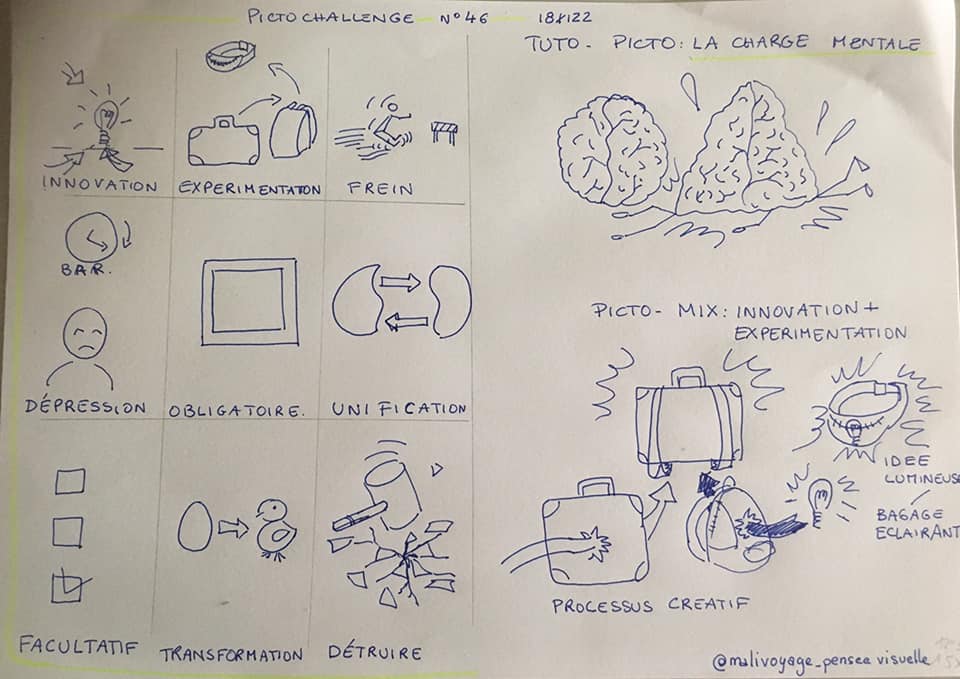 PICTO CHALLENGE N°46 18/122
TUTO - PICTO: LA CHARGE MENTALE
INNOVATION
EXPERIMENTATION
FREIN
BAR.
DÉPRESSION
OBLIGATOIRE.
UNIFICATION
PICTO - MIX: INNOVATION +
EXPERIMENTATION
IDEE
LUMINEUSE
/
BAGAGE
ECLAIRANT
PROCESSUS CREATIF
FACULTATIF
TRANSFORMATION
DÉTRUIRE
@malivoyage_pensee visuelle